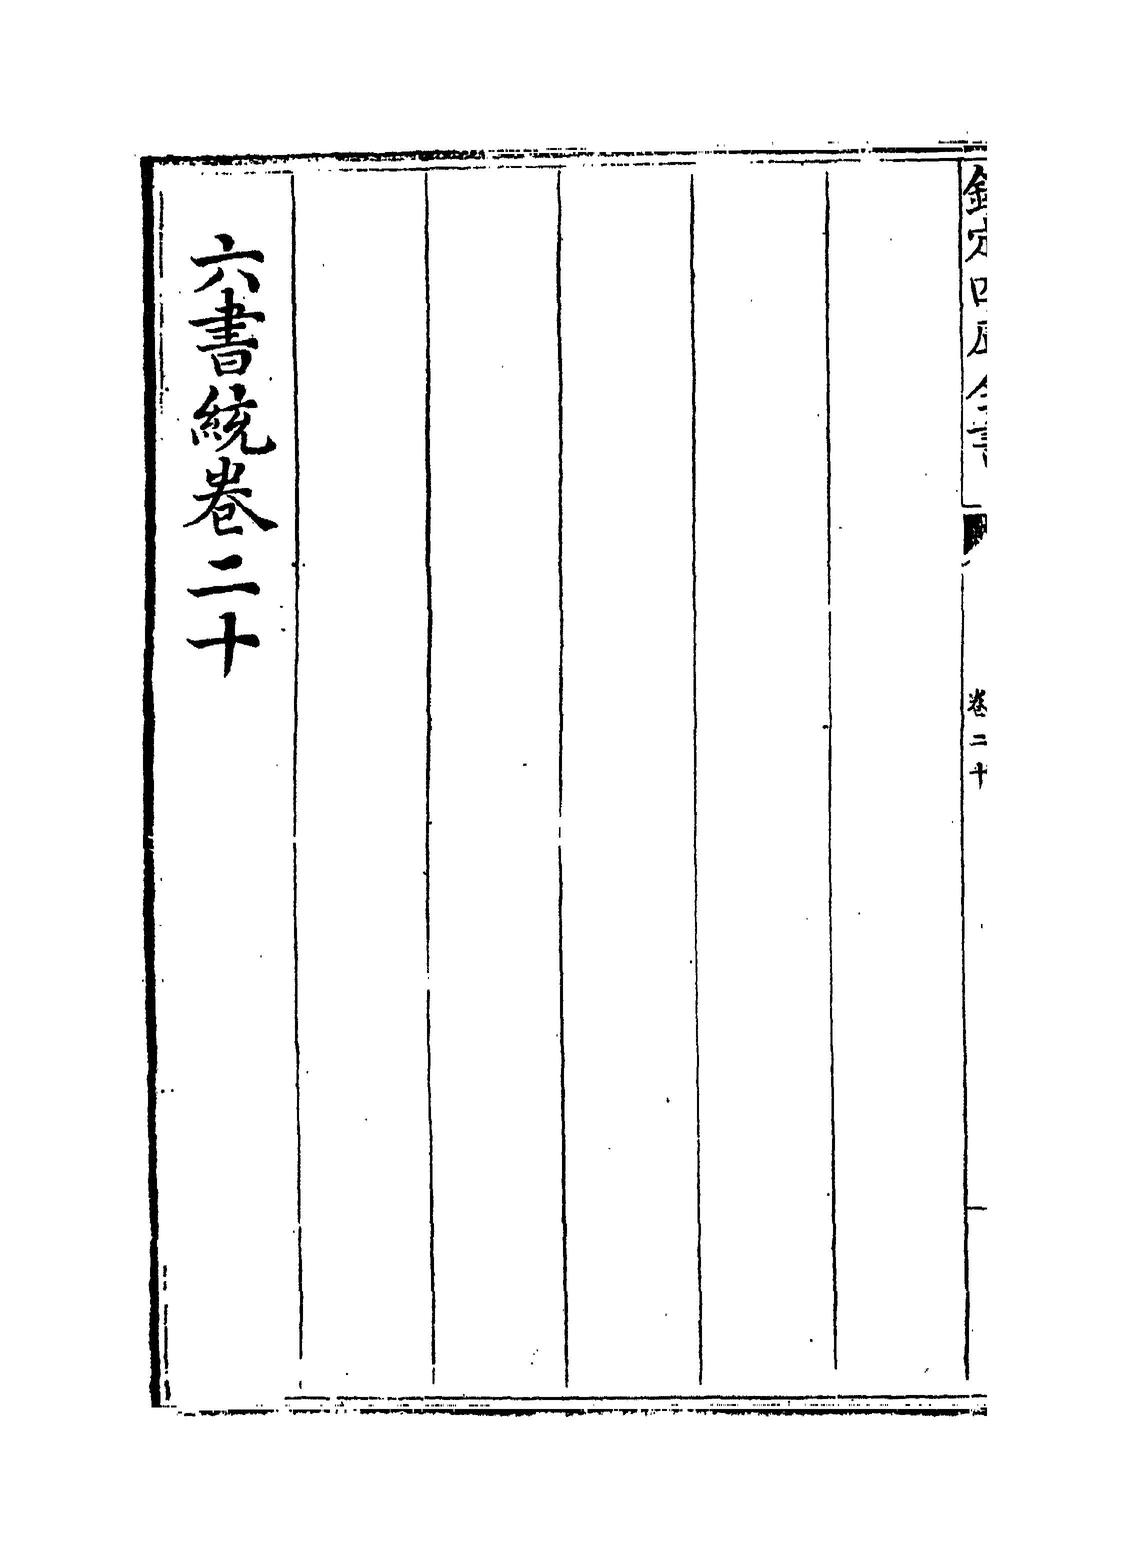 欽定四庫全書
卷二十
六書統卷二十